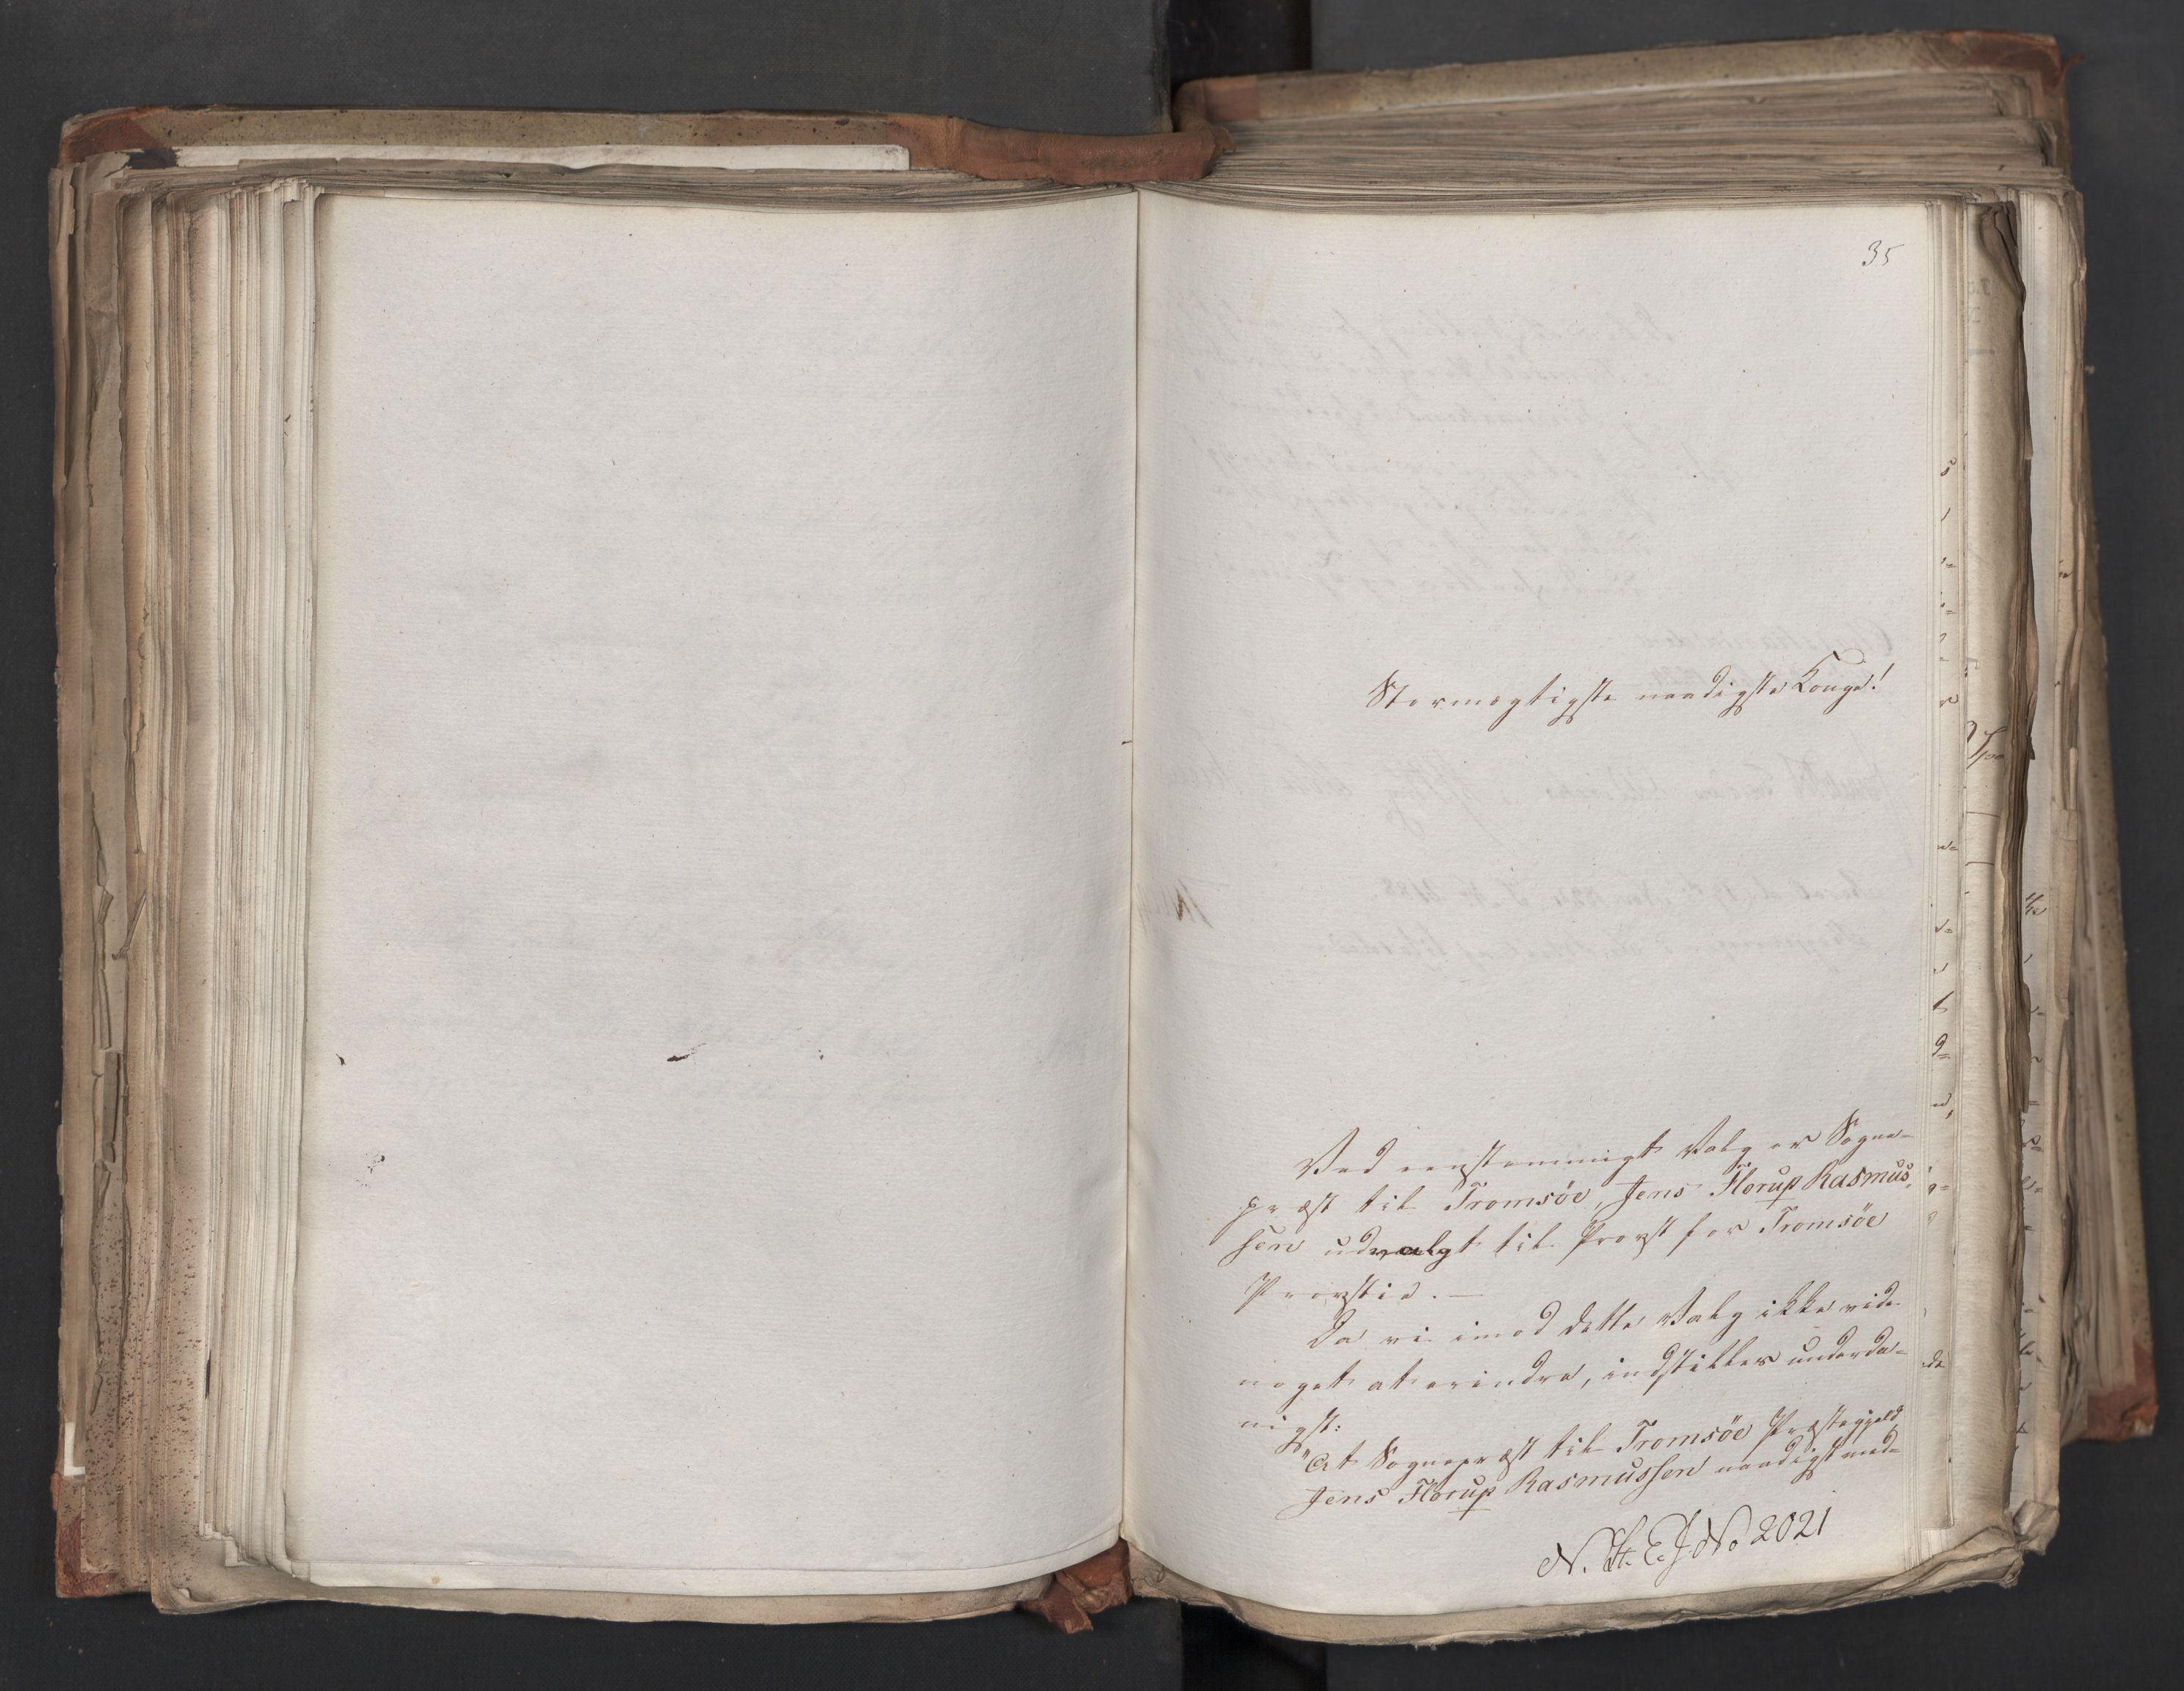 35
Stormægtigste naadigste Konge!
Ved eenstemmigt Valg er Sogne-
præst til Tromsöe, Jens Horup Rasmus-
sen udvalgt til Provst for Tromsöe
Provstie. —
Da vi imod dette Valg ikke vide
noget at erindre, indstilles underda-
nigst:
"At Sognepræst til Tromsöe Præstegjeld
Jens Horup Rasmussen naadigst med-
N. H. E. J. No 2021